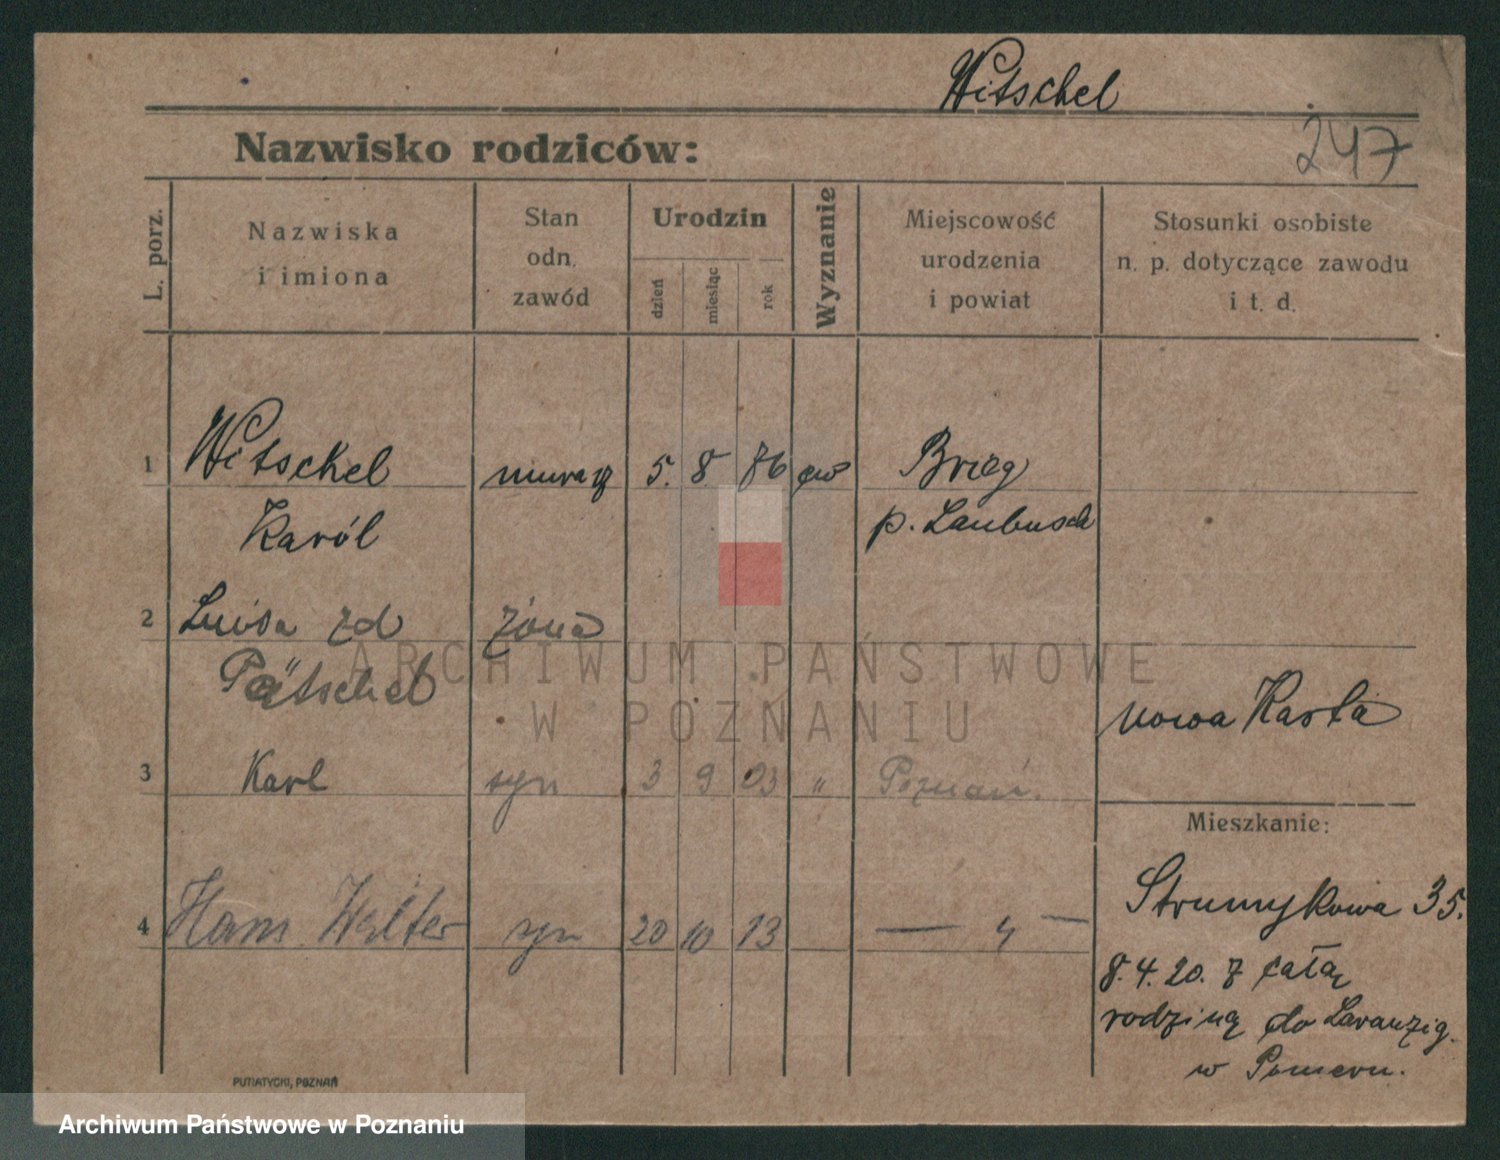 Witschel
Nazwisko rodziców:
247
L. porz.
Nazwiska
i imiona
Stan
odn.
zawód
Urodzin
dzień
miesiąc
rok
Wyznanie
Miejscowość
urodzenia
i powiat
Stosunki osobiste
n. p. dotyczące zawodu
i t. d.
1 Witschel murarz 5. 8. 76 ew Brieg
Karól p. Laubusch
2 Luisa zd żona
Pätschel
nowa Karta
3 Karl syn 3 9 03 " Poznań.
Mieszkanie:
Strumykowa 35.
4 Hans Walter syn 20 10 13 — " —
8. 4. 20. z całą
rodziną do
w Pomern.
PUTIATYCKI, POZNAŃ
ARCHIWUM PAŃSTWOWE
W POZNANIU
Archiwum Państwowe w Poznaniu